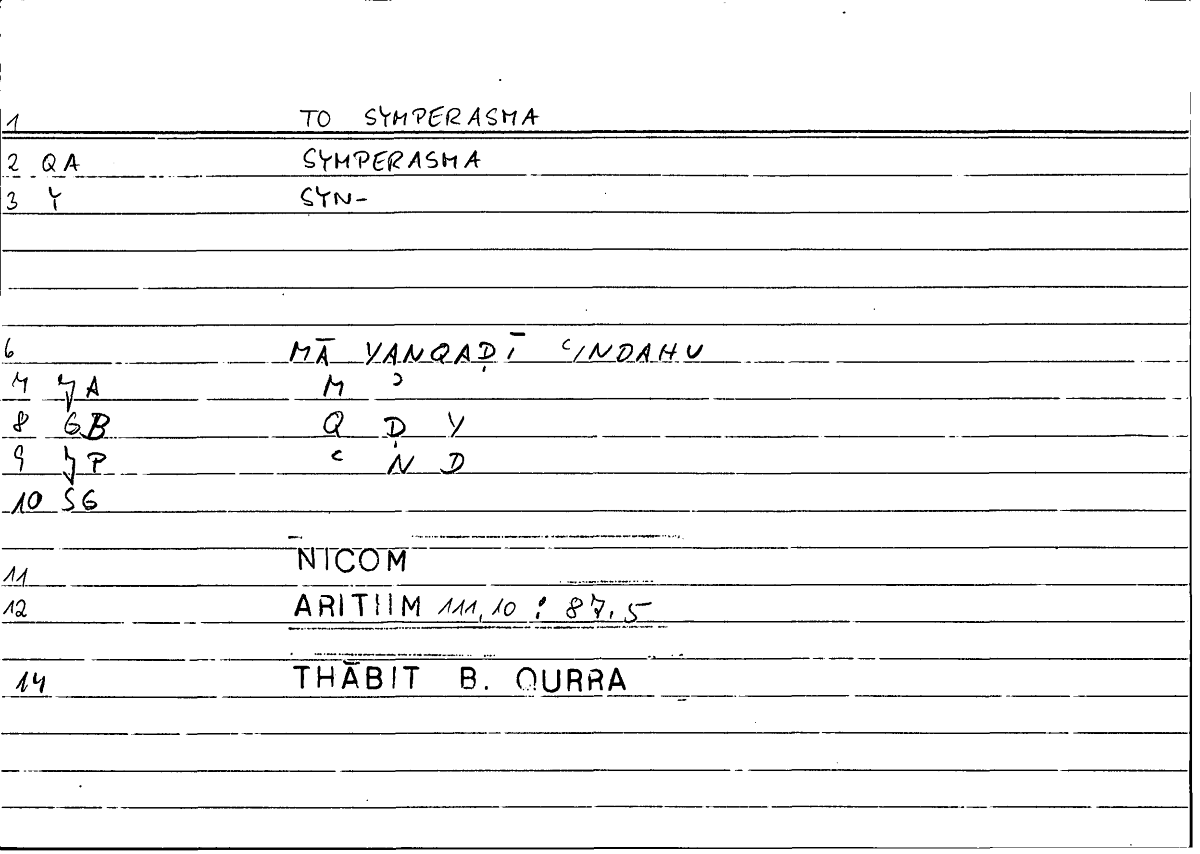 1 TO SYMPERASMA
2 QA SYMPERASMA
3 Y SYN-
6 MĀ YANQAḌĪ ʿINDAHU
7 A M ʾ
8 GB Q Ḍ Y
9 P ʿ N D
10 SG
11 NICOM
12 ARITHM 111,10 : 87,5
14 THĀBIT B. QURRA